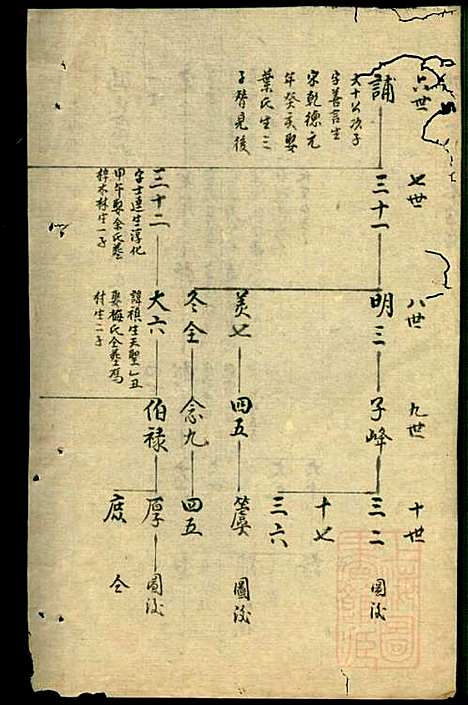 六世
七世
八世
九世
十世
誧
大十公次子
字善言生
宋乾德元
年癸亥娶
葉氏生三
子譜見後
三十一
明三
子峰
三二
圖後
十七
三六
美七
四五
圖後
冬全
念九
四五
三十二
字士連生淳化
甲午娶余氏葬
梓木林生一子
大六
諱禎生天聖乙丑
娶梅氏仝葬馮
村生二子
伯祿
厚
圖後
庶
仝